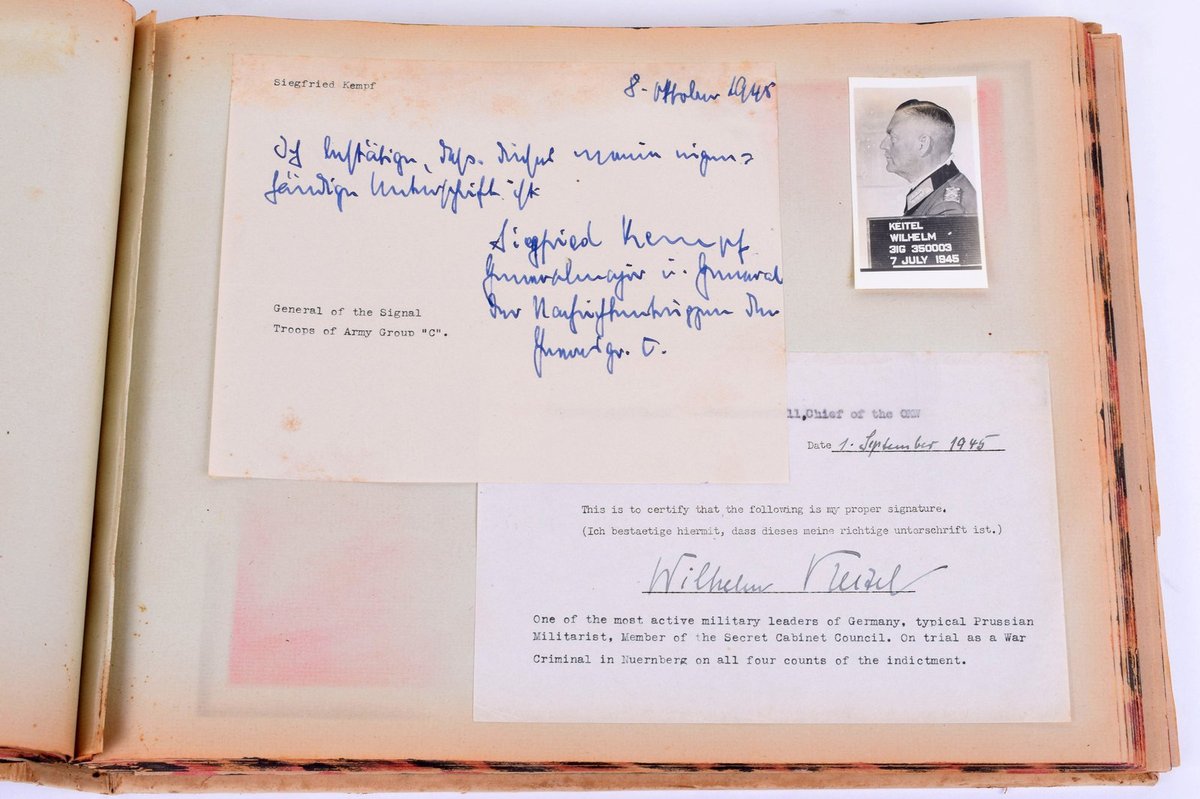 Siegfried Kempf
8. Oktober 1945
Ich bestätige, dass dieses meine eigen=
händige Unterschrift ist
Siegfried Kempf
Generalmajor u. General
der Nachrichtentruppen der
Heeresgr. C.
General of the Signal
Troops of Army Group "C".
KEITEL
WILHELM
31G 350003
7 JULY 1945
ll, Chief of the OKW
Date 1. September 1945
This is to certify that the following is my proper signature.
(Ich bestaetige hiermit, dass dieses meine richtige unterschrift ist.)
Wilhelm Keitel
One of the most active military leaders of Germany, typical Prussian
Militarist, Member of the Secret Cabinet Council. On trial as a War
Criminal in Nuernberg on all four counts of the indictment.